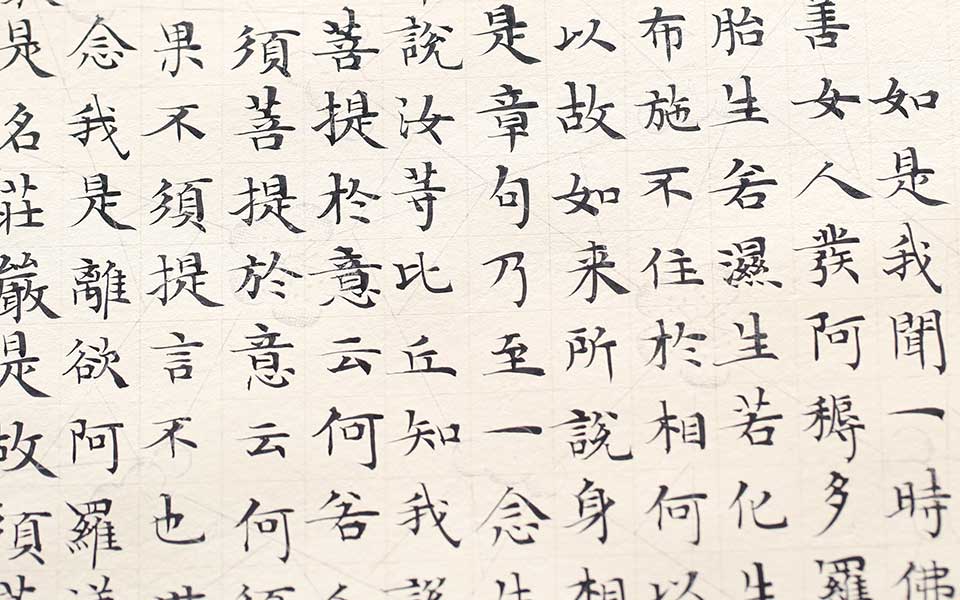 如是我聞一時佛
善女人發阿耨多羅
胎生若濕生若化生
布施不住於相何以
以故如来所說身相
是章句乃至一念生
說汝等比丘知我說
菩提於意云何若
須菩提於意云何須
果不須提言不也世
念我是離欲阿羅
是名莊嚴是故須菩